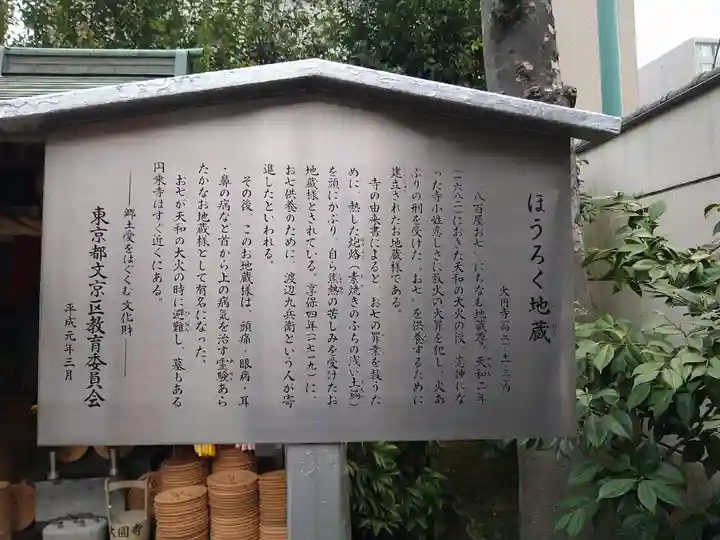 ほうろく地蔵
大円寺(向丘一・十一・三)内
八百屋お七にちなむ地蔵尊。天和二年
(一六八二)におきた天和の大火の後、恋仲にな
った寺小姓恋しさに放火の大罪を犯し、火あ
ぶりの刑を受けた〝お七〟を供養するために
建立されたお地蔵様である。
寺の由来書によると、お七の罪業を救うた
めに、熱した炮烙(素焼きのふちの浅い土鍋)
を頭にかぶり、自ら焦熱の苦しみを受けたお
地蔵様とされている。享保四年(一七一九)に、
お七供養のために、渡辺九兵衛という人が寄
進したといわれる。
その後、このお地蔵様は、頭痛・眼病・耳
・鼻の病など首から上の病気を治す霊験あら
たかなお地蔵様として有名になった。
お七が天和の大火の時に避難し、墓もある
円乗寺はすぐ近くにある。
―郷土愛をはぐくむ文化財―
東京都文京区教育委員会
平成元年三月
大圓寺